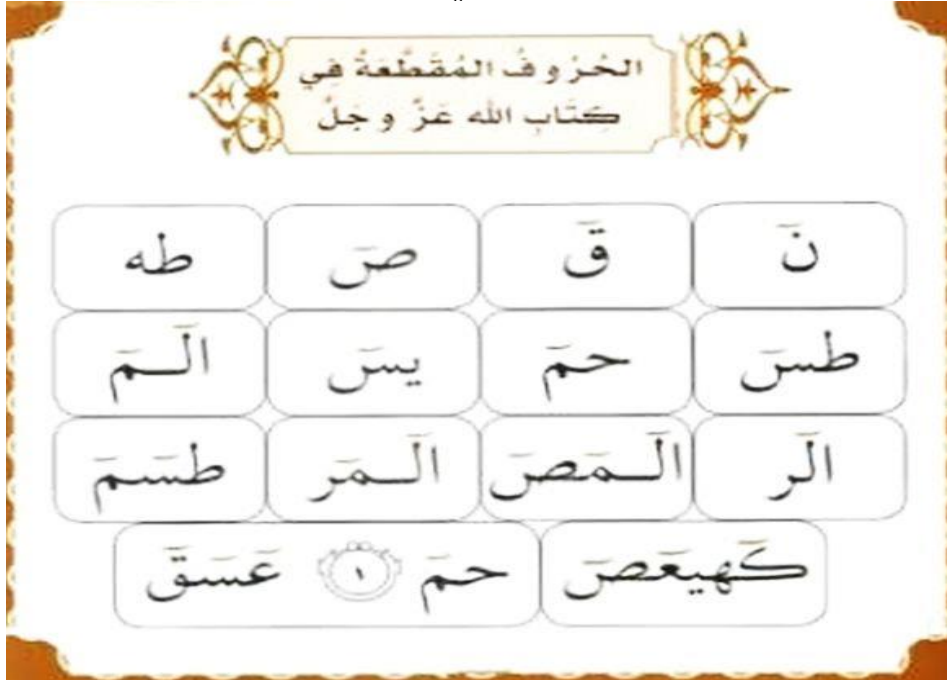 الحُرُوفُ المُقَطَّعَةُ فِي
كِتَابِ الله عَزَّ وجَلَّ
نَ قَ صَ طه
طسَ حمَ يسَ الَـمَ
الَر الَـمَصَ الَـمَر طسَمَ
كَهيعَصَ حمَ ١ عَسَقَ